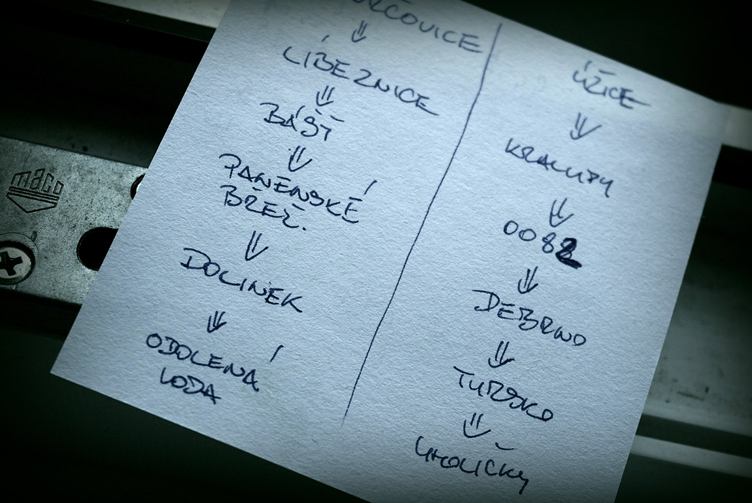 maco
RCOVICE
⇓
LÍBEZNICE
⇓
BÁŠŤ
⇓
PANENSKÉ
BŘEZ.
⇓
DOLINEK
⇓
ODOLENÁ
VODA
ÚŽICE
⇓
KRALUPY
⇓
0082
⇓
DEBRNO
⇓
TURSKO
⇓
ÚHOLIČKY